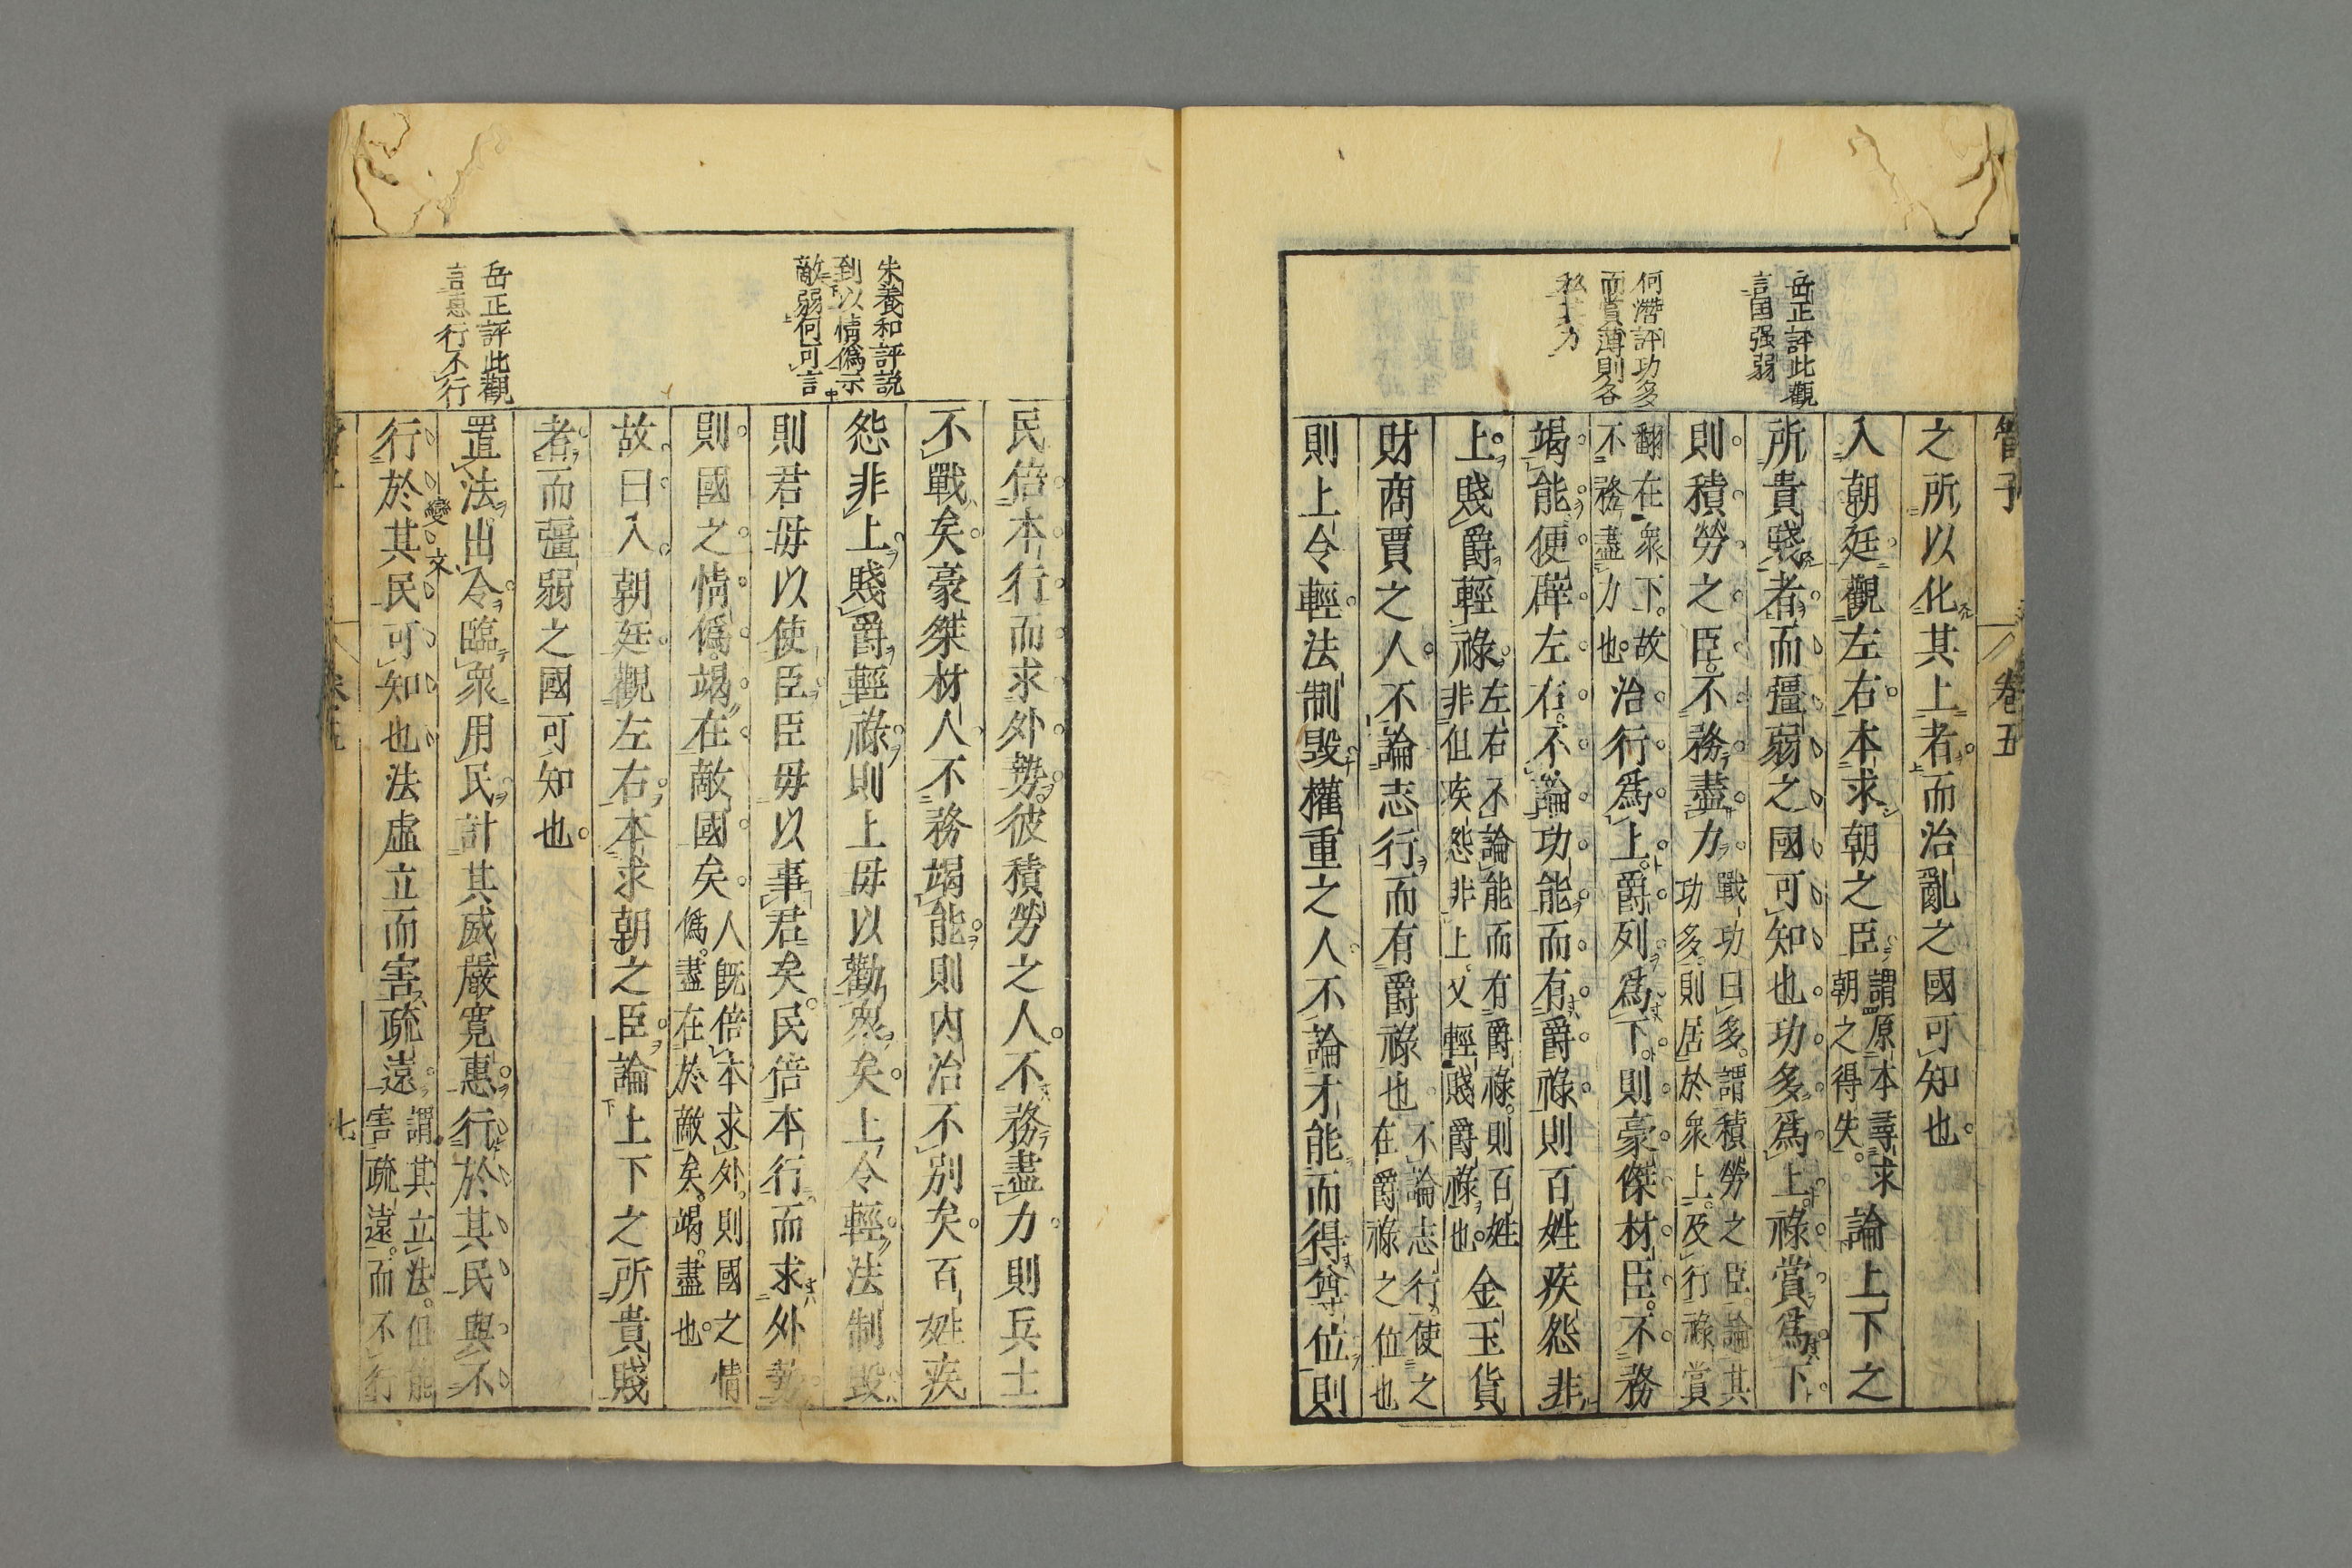 管子
卷五
岳正評此觀
言国强弱
何濳評功多
而賞薄則各
私其力
之所以化其上者而治亂之國可知也
入朝廷觀左右本求朝之臣謂原本尋求朝之得失論上下之
所貴賤者而彊弱之國可知也功多爲上祿賞爲下
則積勞之臣不務盡力戰功曰多謂積勞之臣論其功多則居於衆上及行祿賞
翻在衆下故不務盡力也治行爲上爵列爲下則豪傑材臣不務
竭能便辟左右不論功能而有爵祿則百姓疾怨非
上賤爵輕祿左右不論能而有爵祿則百姓非但疾怨非上又輕賤爵祿也金玉貨
財商賈之人不論志行而有爵祿也不論志行使之在爵祿之位也
則上令輕法制毀權重之人不論才能而得尊位則
朱養和評說
到以情僞示
敵弱何可言
岳正評此觀
言惠行不行
民倍本行而求外勢彼積勞之人不務盡力則兵士
不戰矣豪桀材人不務竭能則內治不別矣百姓疾
怨非上賤爵輕祿則上毋以勸衆矣上令輕法制毀
則君毋以使臣臣毋以事君矣民倍本行而求外勢
則國之情僞竭在敵國矣人既倍本求外則國之情僞盡在於敵矣竭盡也
故曰入朝廷觀左右本求朝之臣論上下之所貴賤
者而彊弱之國可知也
置法出令臨衆用民計其威嚴寬惠行於其民與不
變文
行於其民可知也法虛立而害疏遠謂其立法但能害疏遠而不行
七